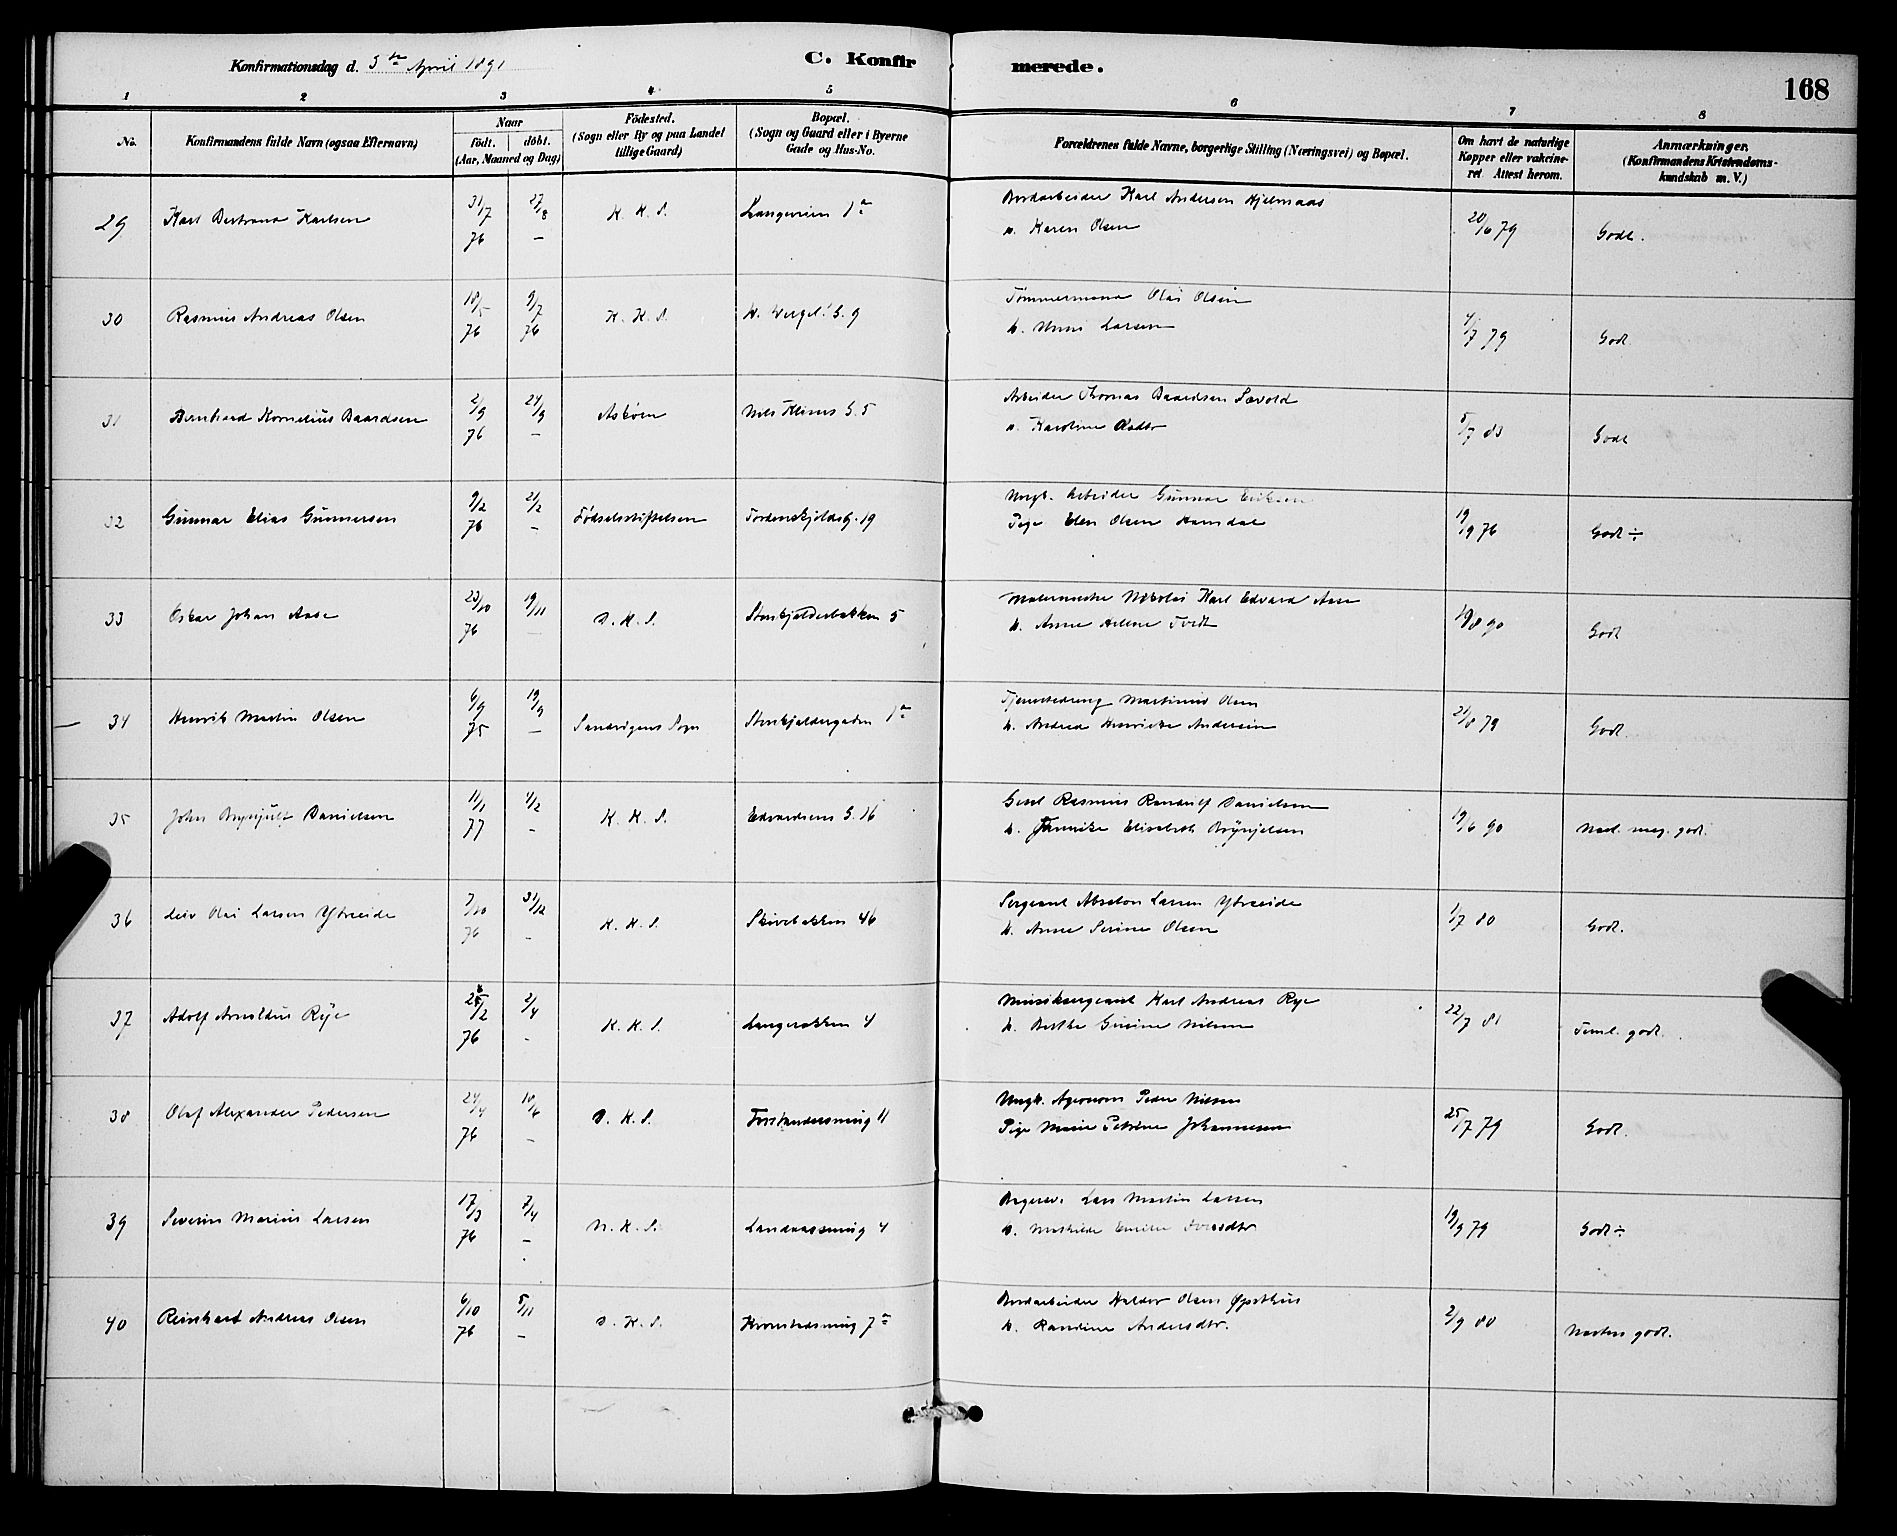 Konfirmationsdag d. 5te April 1891
C. Konfirmerede.
168
1 2 3 4 5 6 7 8
No.
Konfirmandens fulde Navn (ogsaa Efternavn)
Naar
födt. döbt.
(Aar, Maaned og Dag)
Födested.
(Sogn eller By og paa Landet
tillige Gaard)
Bopæl.
(Sogn og Gaard eller i Byerne
Gade og Hus-No.
Forældrenes fulde Navne, borgerlige Stilling (Næringsvei) og Bopæl.
Om havt de naturlige
Kopper eller vakcine-
ret. Attest herom.
Anmærkninger.
(Konfirmandens Kristendoms-
kundskab m. V.)
29 Karl Bertrand Karlsen 31/7 76 27/8 – K. K. S. Langeveien 1a
Bordarbeider Karl Andersen Hjelmaas
o. Karen Olsen
20/6 79 Godt.
30 Rasmus Andreas Olsen 18/5 76 9/7 76 K. K. S. N. Vergel. G. 9
Tömmermand Olai Olsen
h. Unni Larsen
4/7 79 Godt
31 Bernhard Kornelius Baardsen 2/9 76 24/9 – Askøen Nils Klims G. 5
Arbeider Thomas Baardsen Sævold
o. Karoline Olsdtr
5/7 83 Godt
32 Gunnar Elias Gunnersen 9/2 76 21/2 – Födselsstiftelsen Tordenskjoldsg. 19
Ungk. Arbeider Gunnar Eriksen
Pige Elen Olsen Hamdal
19/9 76 Godt ÷
33 Oskar Johan Aase 23/10 76 19/11 – D. K. S. Stenkjelderbakken 5
Malermester Nikolai Karl Edvard Aase
h. Anne Helene Tvedt
19/8 90 Godt
34 Henrik Martin Olsen 6/9 75 19/9 – Sandvigens Sogn Stenkjeldergaden 1a
Tjenestedreng Martinius Olsen
h. Andrea Henrikke Andersen
21/8 79 Godt.
35 John Brynjulf Danielsen 11/1 77 4/2 – K. K. S. Edvardsens G. 16
Rasmus Randulf Danielsen
h. Jannike Elisabeth Brynjelsen
19/6 90 Mod. meg. godt.
36 Leiv Olai Larsen Ytreeide 7/10 76 31/12 – K. K. S. Skivebakken 46
Sergeant Absalon Larsen Ytreeide
h. Anne Serine Olsen
1/7 80 Godt.
37 Adolf Arnoldus Rye /2 76 2/4 – K. K. S. Langerakken 4
Musiksergeant Karl Andreas Rye
h. Berthe Gurine Nilsen
22/7 81 Teml. godt.
38 Olaf Alexander Pedersen 24/4 76 18/6 – D. K. S. Forstandersmug 11
Ungk. Agronom Peder Nilsen
Pige Marie Petrine Johannesen
25/7 79 Godt.
39 Severin Marius Larsen 17/3 76 2/4 – N. K. S. Landaassmug 4
Bagersv. Lars Martin Larsen
o. Mathilde Emilie
19/9 79 Godt ÷
40 Reinhart Andreas Olsen 6/10 76 5/11 – D. K. S. Kronstadsmug 7a
Bordarbeider Haldor Olsen Øpsthus
h. Randine Andersdtr.
2/9 80 Næsten godt.